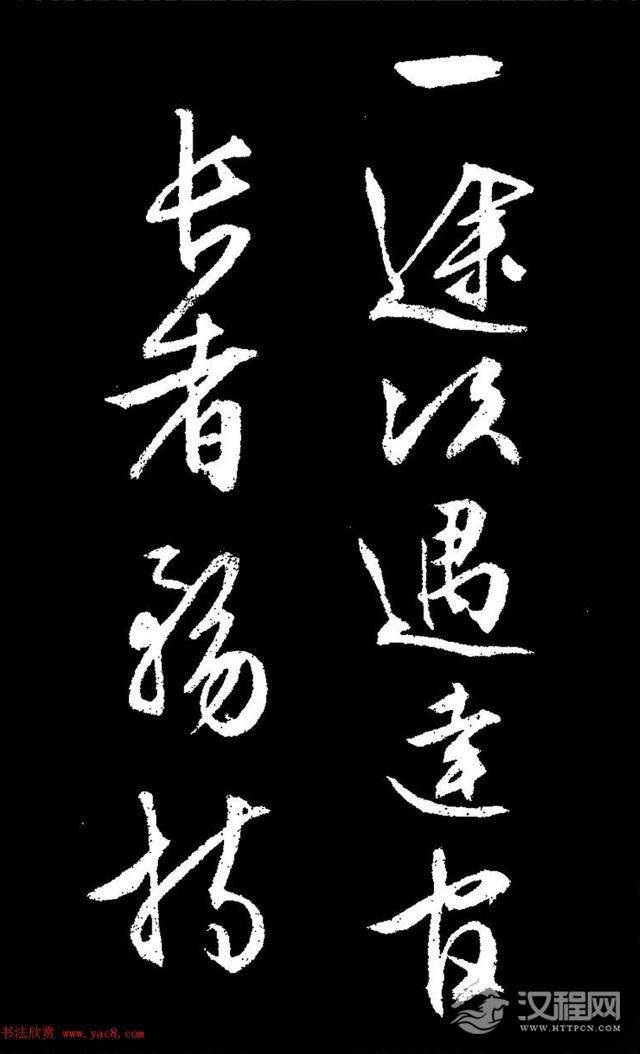 一途次遇達官
長者務持
书法欣赏 www.yac8.com
汉程网
WWW.HTTPCN.COM